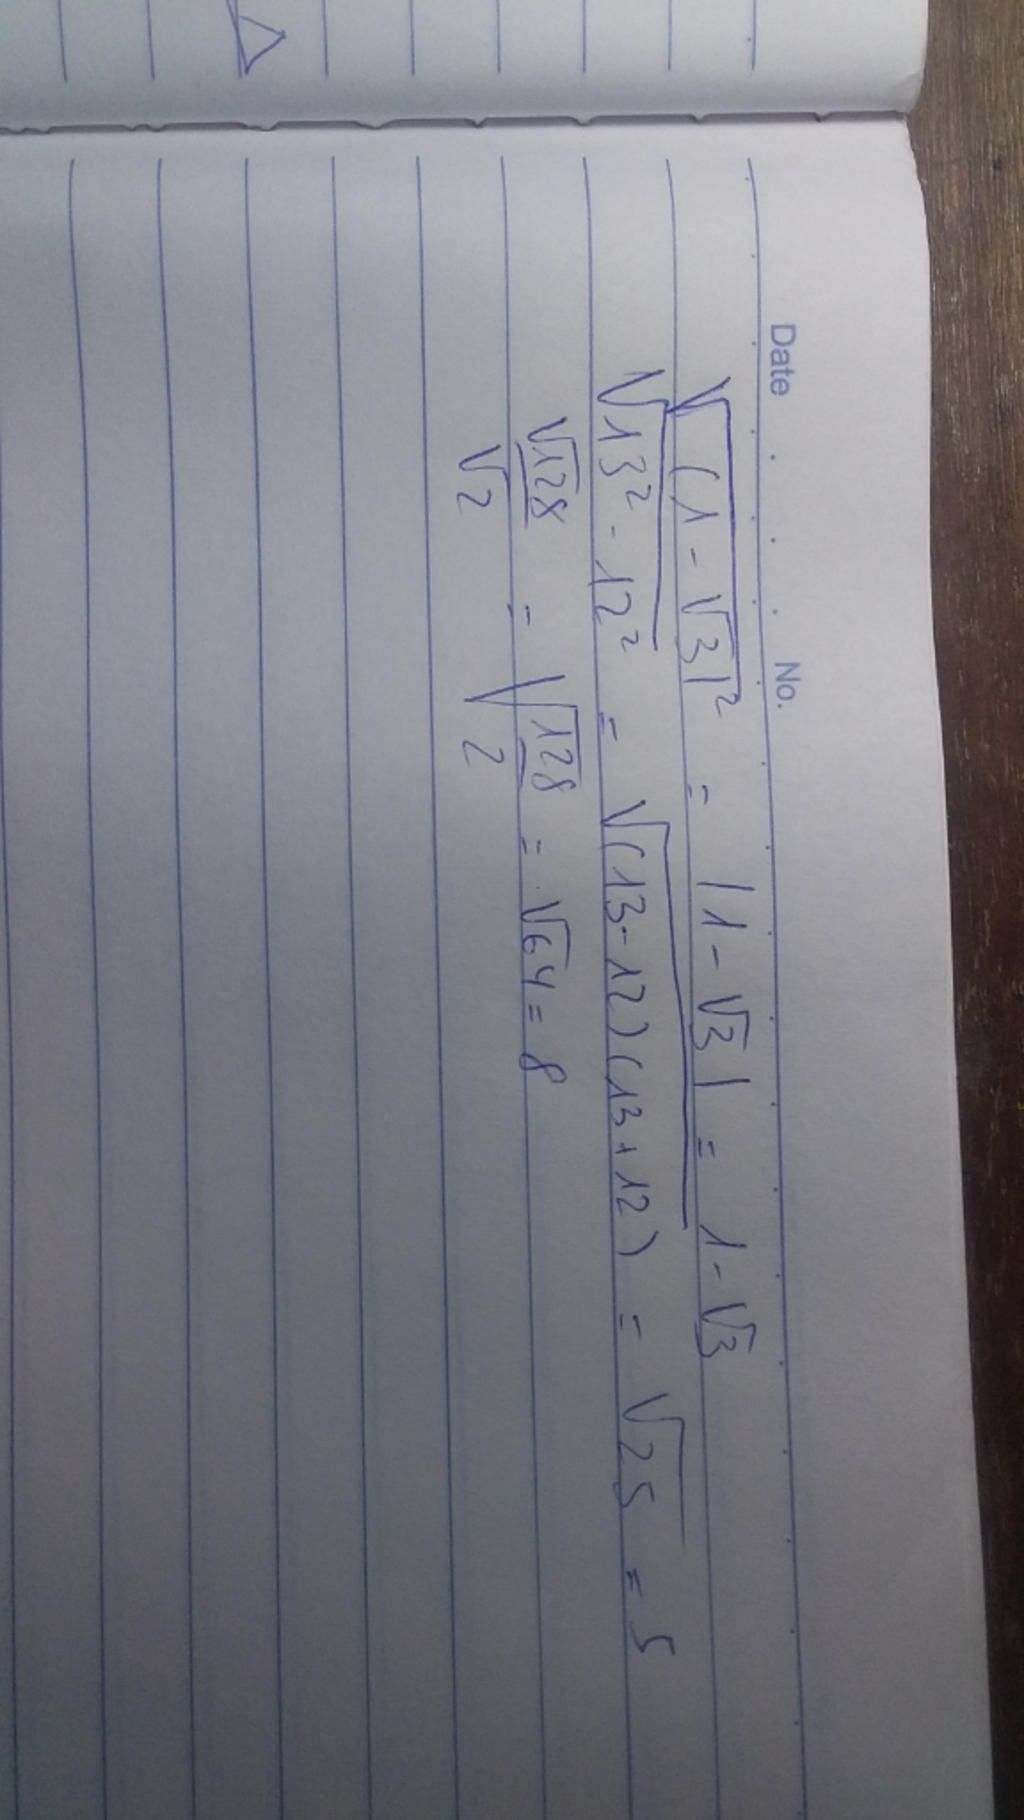 Date . . . No.
√(1-√3)² = |1-√3| = 1-√3
√13²-12² = √(13-12)(13+12) = √25 = 5
√128/√2 = √128/2 = √64 = 8